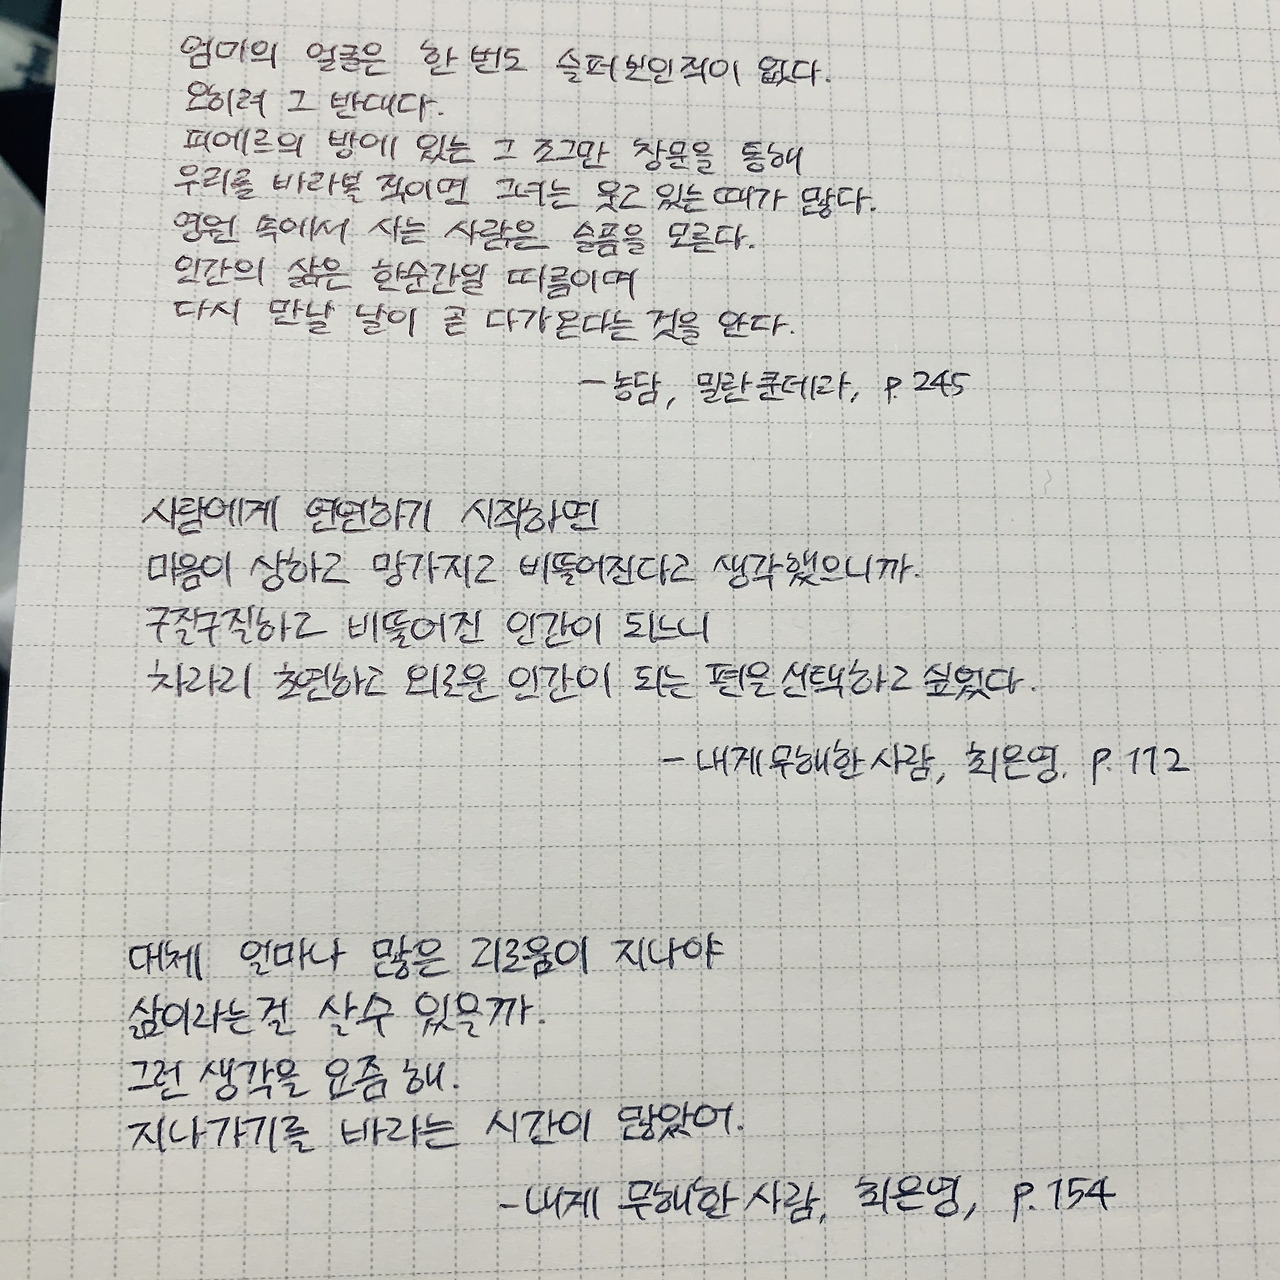 엄마의 얼굴은 한 번도 슬퍼보인적이 없다.
오히려 그 반대다.
피에르의 방에 있는 그 조그만 창문을 통해
우리를 바라볼 적이면 그녀는 웃고 있는 때가 많다.
영원 속에서 사는 사람은 슬픔을 모른다.
인간의 삶은 한순간일 따름이며
다시 만날 날이 곧 다가온다는 것을 안다.
- 농담, 밀란쿤데라, p. 245
사람에게 연연하기 시작하면
마음이 상하고 망가지고 비뚤어진다고 생각했으니까.
구질구질하고 비뚤어진 인간이 되느니
차라리 초연하고 외로운 인간이 되는 편을 선택하고 싶었다.
- 내게 무해한 사람, 최은영. p. 112
대체 얼마나 많은 괴로움이 지나야
삶이라는걸 살수 있을까.
그런 생각을 요즘 해.
지나가기를 바라는 시간이 많았어.
- 내게 무해한 사람, 최은영, p. 154